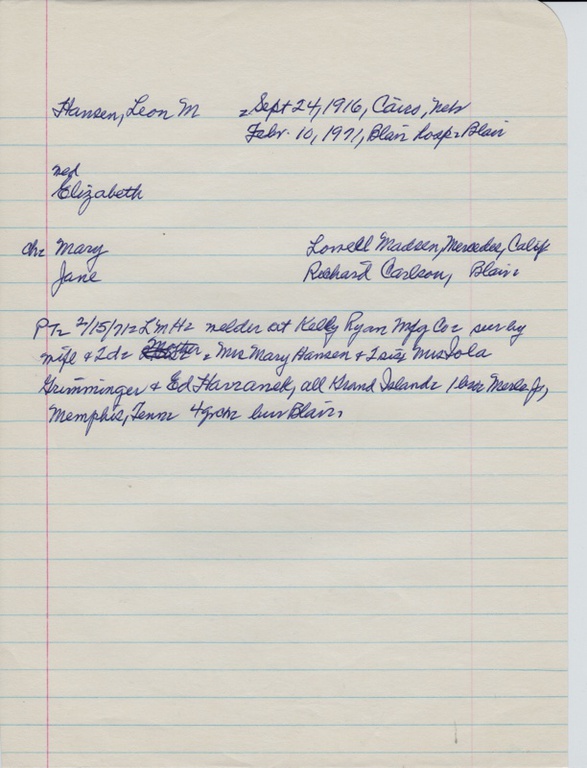 Hansen, Leon M = Sept 24, 1916, Cairo, Nebr
Febr. 10, 1971, Blair hosp = Blair
med
Elizabeth
ch = Mary Lowell Madsen, Mercedes, Calif
Jane Richard Carlson, Blair =
PT = 2/15/71 = LMH = welder at Kelly Ryan Mfg Co = sur by
wife & 2d = Mother = Mrs Mary Hansen & 2 sis Mrs Iola
Grimminger & Ed Harzanek, all Grand Island = 1 bro Merle Jr,
Memphis, Tenn 4 grch bur Blair =